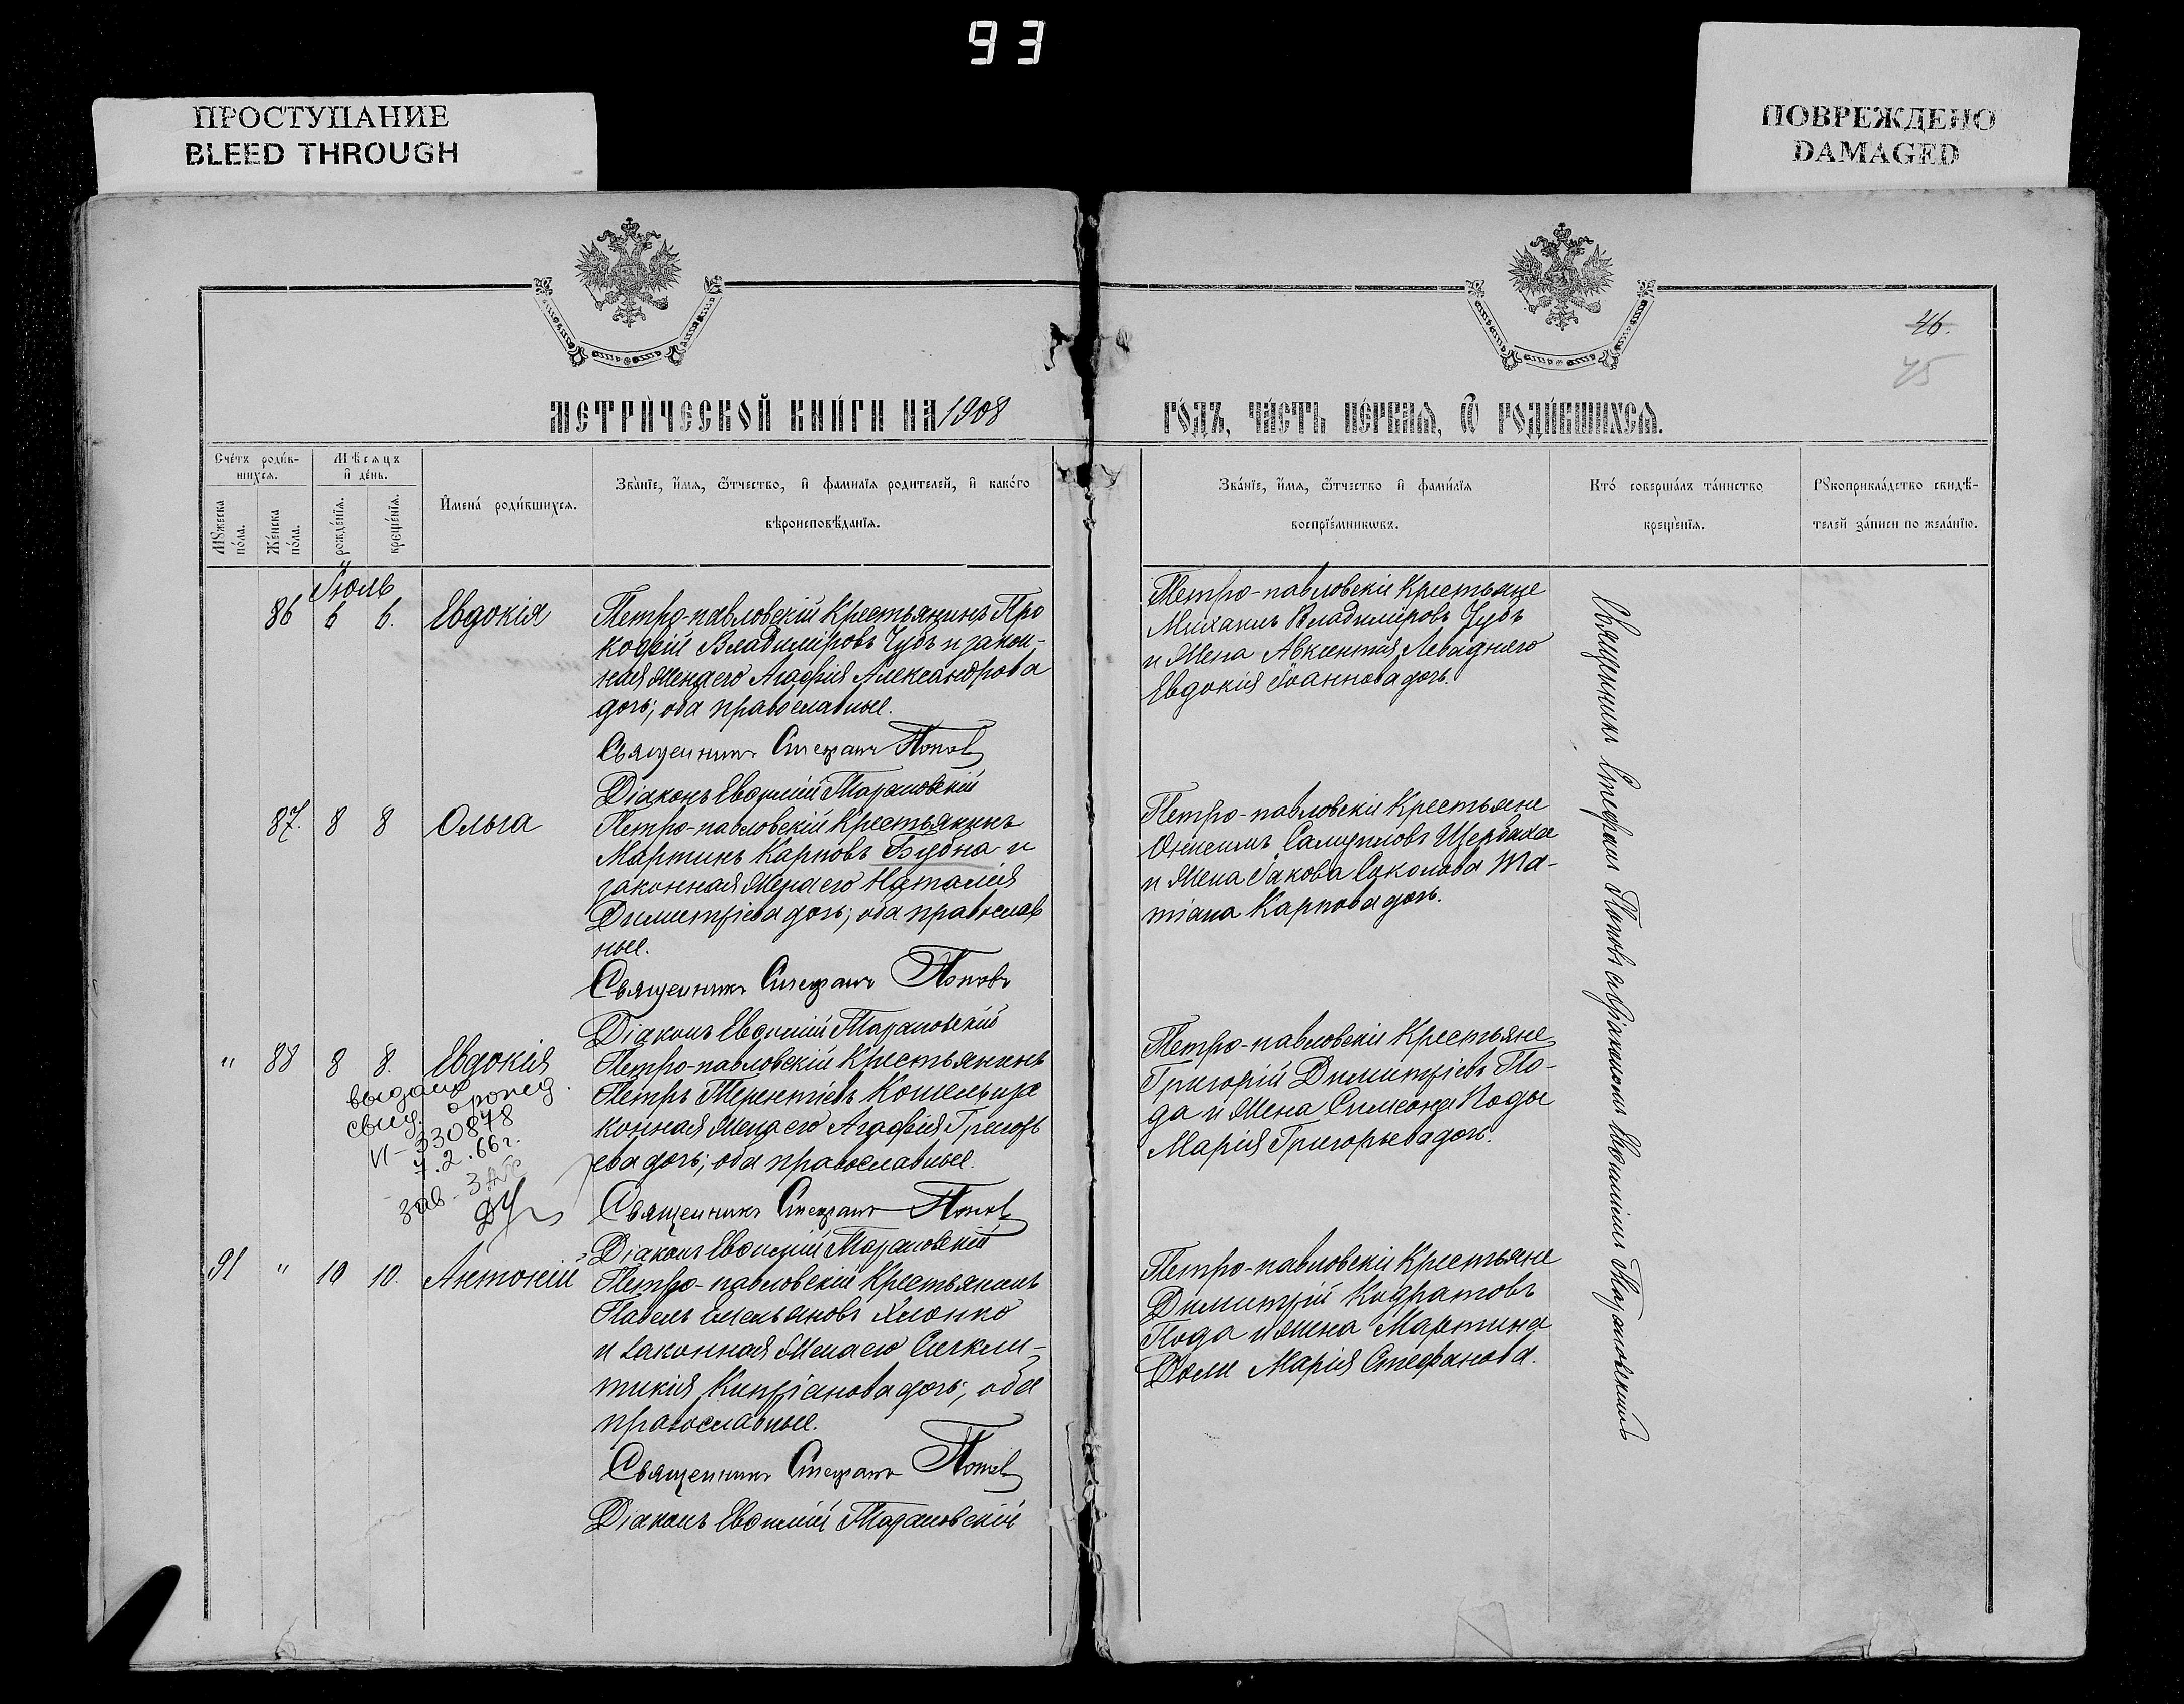 93
ПРОСТУПАНИЕ
BLEED THROUGH
ПОВРЕЖДЕНО
DAMAGED
46.
45
МЕТРИ́ЧЕСКОЙ КНИ́ГИ НА 1908
ГО́ДЪ, ЧА́СТЬ ПЕ́РВАѦ, Ѽ РОДИ́ВШИХСѦ.
Сче́тъ роди́в-
шихсѧ.
Мѣ́сѧцъ
и҆ де́нь.
Мꙋ́жеска
по́ла.
Же́нска
по́ла.
рожде́нїѧ.
креще́нїѧ.
И҆мена̀ роди́вшихсѧ.
Зва́нїе, и҆́мѧ, ѻ҆́тчество, и҆ фамилїѧ родителей, и҆ како́гѡ
вѣроисповѣ́данїѧ.
Зва́нїе, и҆́мѧ, ѻ҆́тчество и҆ фами́лїѧ
воспрїе́мникѡвъ.
Кто́ соверша́лъ та́инство
креще́нїѧ.
Рꙋкоприкла́дство свидѣ́-
телей за́писи по жела́нїю.
Іюль
86 6 6. Евдокія
Петро-павловскій Крестьянинъ Про
кофій Владиміровъ Чубъ и закон-
ная жена его Агафія Александрова
дочь; оба православные.
Священникъ Стефанъ Попов
Діаконъ Евфимій Тарановскій
Петро-павловскіе Крестьяне
Михаилъ Владиміровъ Чубъ
и жена Авксентія Леваднего
Евдокія Іоаннова дочь.
87. 8 8 Ольга
Петро-павловскій Крестьянинъ
Мартинъ Карповъ Бубна и
законная жена его Наталія
Димитріева дочь; оба православ
ные.
Священникъ Стефанъ Поповъ
Діаконъ Евфимій Тарановскій
Петро-павловскіе Крестьяне
Онисимъ Самуиловъ Щербаха
и жена Іакова Соколова Та-
тіана Карпова дочь.
" 88 8 8. Евдокія
выдано
свид. о рожд.
VI-330878
7.2.66г.
зав-ЗАГС
Петро-павловскій Крестьянинъ
Петръ Терентіевъ Кошель и за
конная жена его Агафія Григорь
ева дочь; оба православные.
Священникъ Стефанъ Попов
Діаконъ Евфимій Тарановскій
Петро-павловскіе Крестьяне
Григорій Димитріевъ По-
да и жена Симеона Поды
Марія Григорьева дочь.
91 " 10 10. Антоній
Петро-павловскій Крестьянинъ
Павелъ Емельяновъ Хлопко
и законная жена его Сигкли-
тикія Кипріанова дочь; оба
православные.
Священникъ Стефанъ Попов
Діаконъ Евфимій Тарановскій
Петро-павловскіе Крестьяне
Димитрій Кодратовъ
Пода и жена Мартина
Доли Марія Стефанова.
Священникъ Стефанъ Поповъ съ діакономъ Евфиміемъ Тарановскимъ